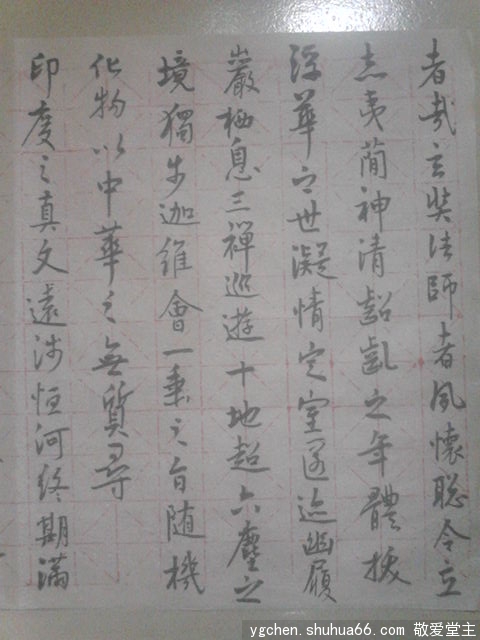 者哉玄奘法師者夙懷聡令立
志夷蕳神清齠齔之年體拔
浮華之世凝情定室匿迹幽履
巖栖息三禪巡遊十地超六塵之
境獨步迦維會一乘之旨随機
化物以中華之無質尋
印度之真文遠涉恒河終期滿
ygchen.shuhua66.com 敬爱堂主